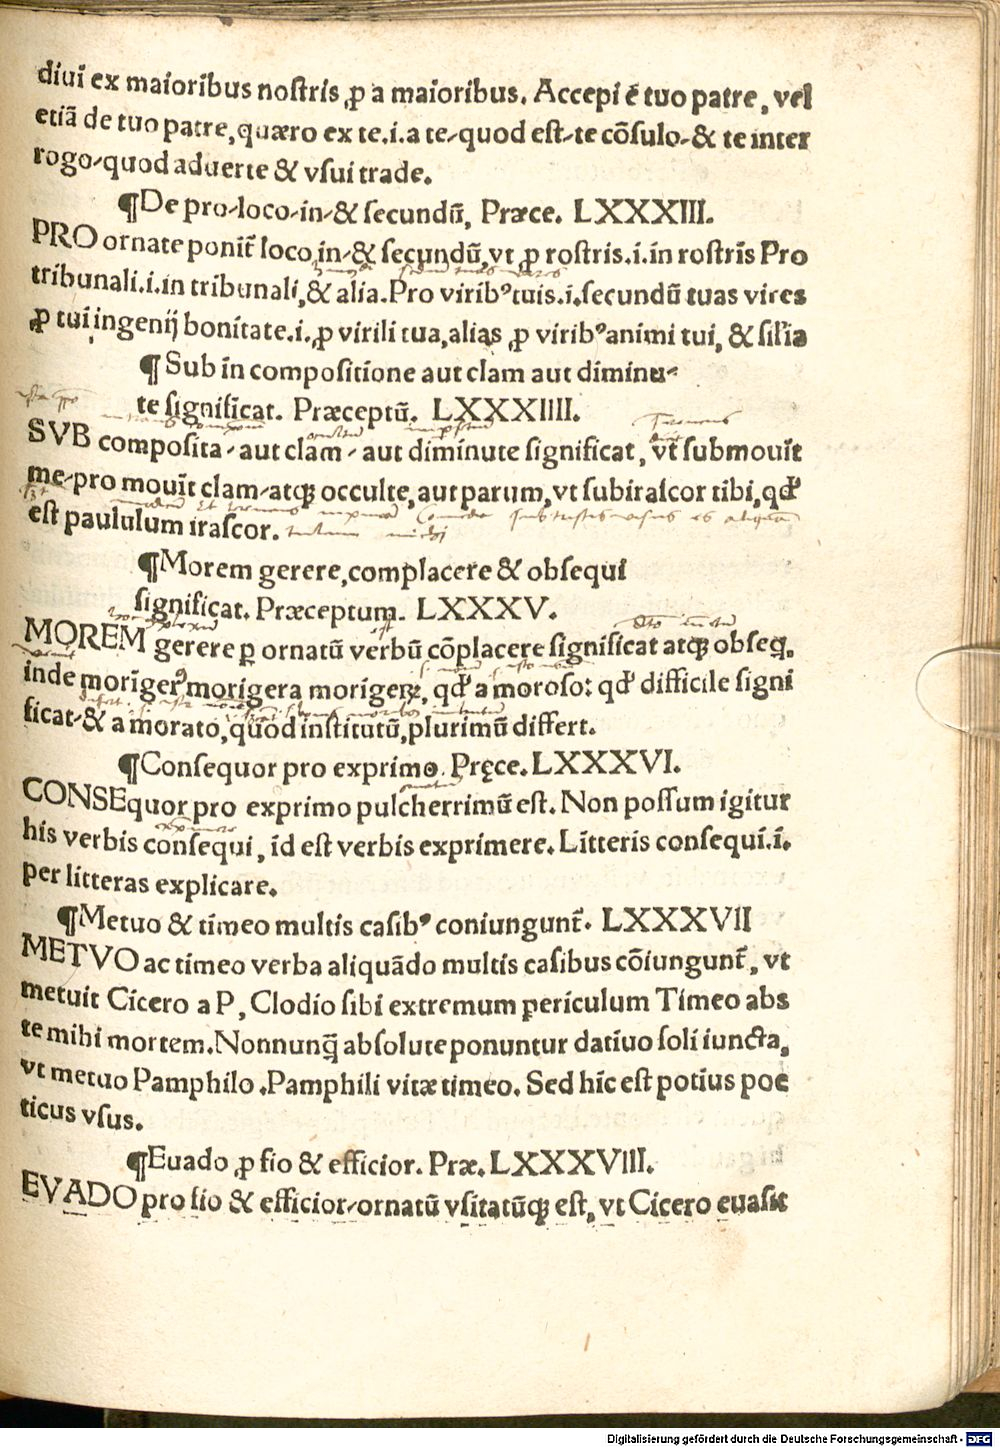 diui ex maioribus nostris, ꝓ a maioribus. Accepi ē tuo patre, vel
etiā de tuo patre, quæro ex te .i. a te-quod est-te cōsulo-& te inter
rogo-quod aduerte & vsui trade.
¶De pro-loco-in-& secundū, Præce. LXXXIII.
PRO ornate ponit̄ loco in-& secundū, vt ꝓ rostris .i. in rostris Pro
tribunali .i. in tribunali, & alia. Pro virib⁹ tuis .i. secundū tuas vires
ꝓ tui ingenij bonitate .i. ꝓ virili tua, alias ꝓ virib⁹ animi tui, & sil'ia
¶ Sub in compositione aut clam aut diminu-
te significat. Præceptū. LXXXIIII.
SVB composita-aut clam-aut diminute significat, vt submouit
me-pro mouit clam-atqꝫ occulte, aut parum, vt subirascor tibi, qd'
est paululum irascor.
¶Morem gerere, complacere & obsequi
significat. Præceptum. LXXXV.
MOREM gerere ꝑ ornatū verbū cōplacere significat atqꝫ obseq.
inde moriger⁹ morigera morigeꝝ, qd' a moroso: qd' difficile signi
ficat-& a morato, quod institutū, plurimū differt.
¶Consequor pro exprimo. Pręce. LXXXVI.
CONSEquor pro exprimo pulcherrimū est. Non possum igitur
his verbis consequi, id est verbis exprimere. Litteris consequi .i.
per litteras explicare.
¶Metuo & timeo multis casib⁹ coniungunt̄. LXXXVII
METVO ac timeo verba aliquādo multis casibus cōiungunt̄, vt
metuit Cicero a P, Clodio sibi extremum periculum Timeo abs
te mihi mortem. Nonnunq̄ absolute ponuntur datiuo soli iuncta,
vt metuo Pamphilo. Pamphili vitæ timeo. Sed hic est potius poe
ticus vsus.
¶Euado ꝓ fio & efficior. Præ. LXXXVIII.
EVADO pro fio & efficior-ornatū vsitatūqꝫ est, vt Cicero euasit
Digitalisierung gefördert durch die Deutsche Forschungsgemeinschaft - DFG